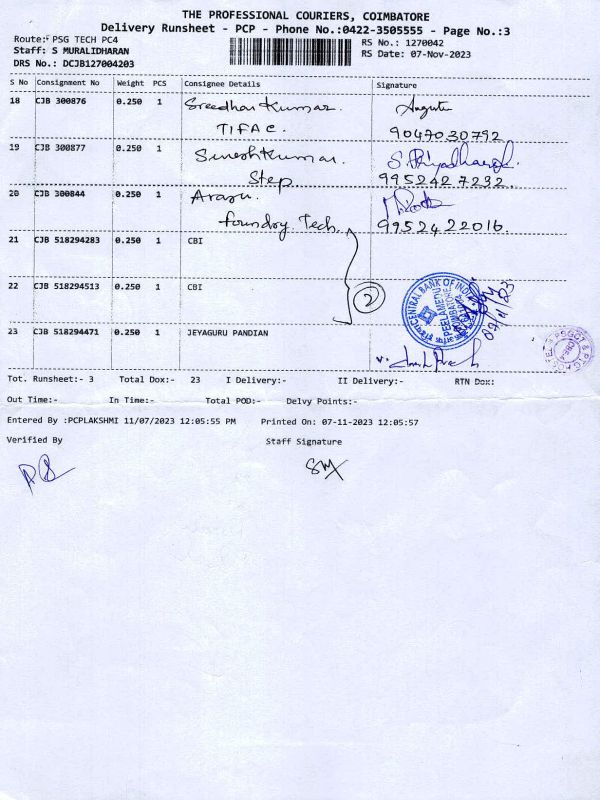 THE PROFESSIONAL COURIERS, COIMBATORE
Delivery Runsheet - PCP - Phone No.:0422-3505555 - Page No.:3
Route: PSG TECH PC4
RS No.: 1270042
Staff: S MURALIDHARAN
RS Date: 07-Nov-2023
DRS No.: DCJB127004203
S No Consignment No Weight PCS Consignee Details Signature
18 CJB 300876 0.250 1 Sreedhar Kumar.
TIFAC. 9047030792
19 CJB 300877 0.250 1 Sureshkumar.
Step. 9952427232.
20 CJB 300844 0.250 1 Arasu.
foundry Tech. 9952422016.
21 CJB 518294283 0.250 1 CBI
2
22 CJB 518294513 0.250 1 CBI
CENTRAL BANK OF INDIA
PEELAMEDU
COIMBATORE
23 CJB 518294471 0.250 1 JEYAGURU PANDIAN
Tot. Runsheet:- 3 Total Dox:- 23 I Delivery:- II Delivery:- RTN Dox:
Out Time:- In Time:- Total POD:- Delvy Points:-
Entered By :PCPLAKSHMI 11/07/2023 12:05:55 PM Printed On: 07-11-2023 12:05:57
Verified By Staff Signature